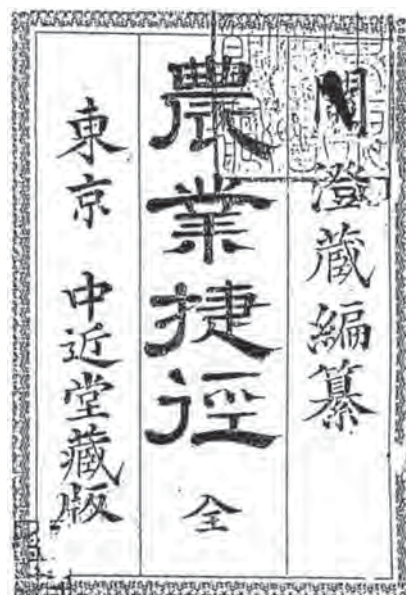 関澄蔵編纂
農業捷徑 全
東京 中近堂藏版